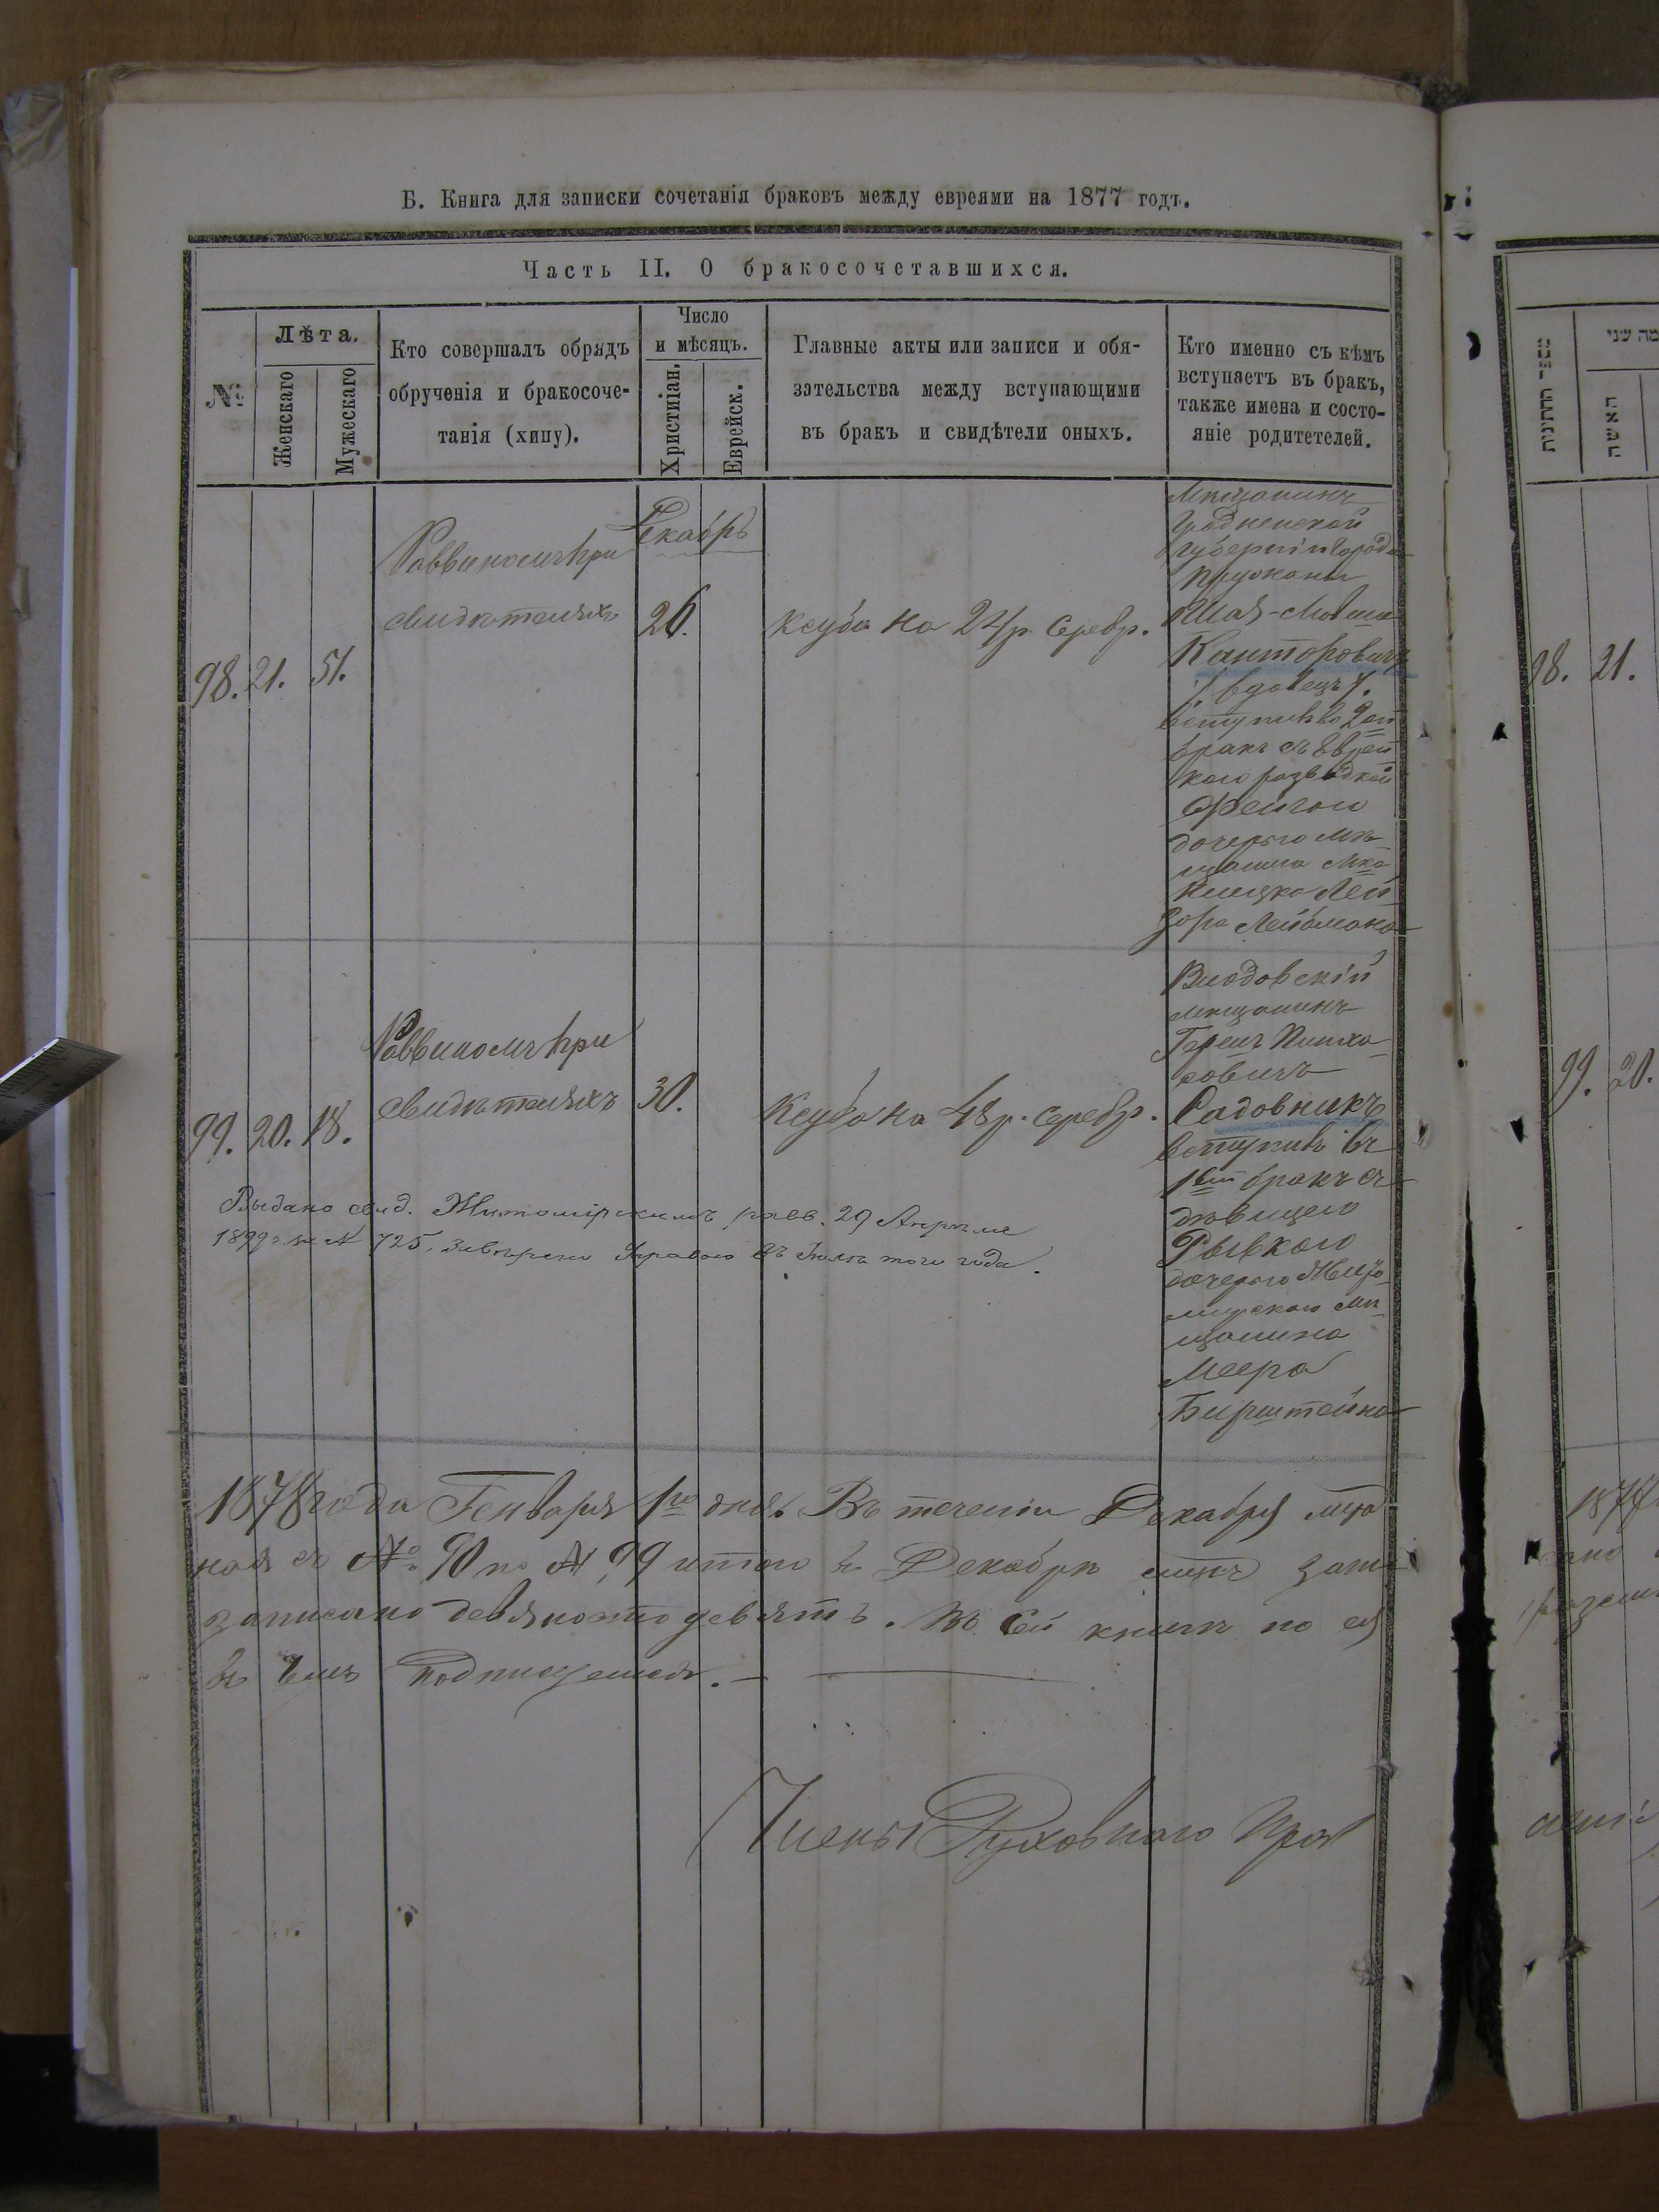 Б. Книга для записки сочетанія браковъ между евреями на 1877 годъ.
Часть II. О бракосочетавшихся.
№
Лѣта.
Женскаго
Мужескаго
Кто совершалъ обрядъ
обрученія и бракосоче-
танія (хипу).
Число
и мѣсяцъ.
Христиіан.
Еврейск.
Главные акты или записи и обя-
зательства между вступающими
въ бракъ и свидѣтели оныхъ.
Кто именно съ кѣмъ
вступаетъ въ бракъ,
также имена и состо-
яніе родитетелей.
98. 21. 51.
Раввиномъ при
свидѣтеляхъ
Декабрь
26.
Ксуба на 24 р. Серебр.
Мѣщанинъ
Гродненской
Губерніи города
Пружаны
Шая-Мовша
Канторовичъ
(вдовецъ).
вступивъ во 2ой
бракъ съ Еврей
кою разводкой
Фейгою
дочерью мѣ-
щанина
Лей
зора Лейбмана
99. 20. 18.
Раввиномъ при
свидѣтеляхъ
30.
Ксуба на 48 р. серебр.
Влодовскій
мѣщанинъ
Герецъ Пинха-
совичъ
Садовникъ
вступивъ въ
1вый бракъ съ
дѣвицею
Рывкою
дочерью Жито-
мирскаго мѣ-
щанина
Меера
Бирштейна
Выдано свид. Житомірскимъ равв. 29 Апрѣля
1899 г. за № 725, завѣрено Управою въ Іюлѣ того года.
1878 года Генваря 1го дня. Въ теченіи Декабря мца
съ № 90 по № 99 итого въ Декабрѣ
записано девяносто девять. Въ сей книгѣ по ея
въ чемъ подписуемся.
Члены Духовнаго Прав
מספר החתונות
האשה
98. 21.
99. 20.